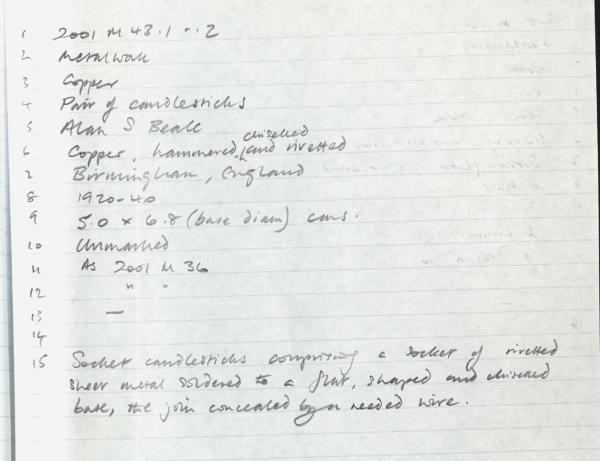 1 2001 M 43.1 - .2
2 Metalwork
3 Copper
4 Pair of candlesticks
5 Alan S Beale
chiselled
6 Copper, hammered, and rivetted
7 Birmingham, England
8 1920-40
9 5.0 x 6.8 (base diam) cms.
10 Unmarked
11 As 2001 M 36
12 " "
13 —
14
15 Socket candlesticks comprising a socket of rivetted
sheet metal soldered to a flat, shaped and chiselled
base, the join concealed by a reeded wire.